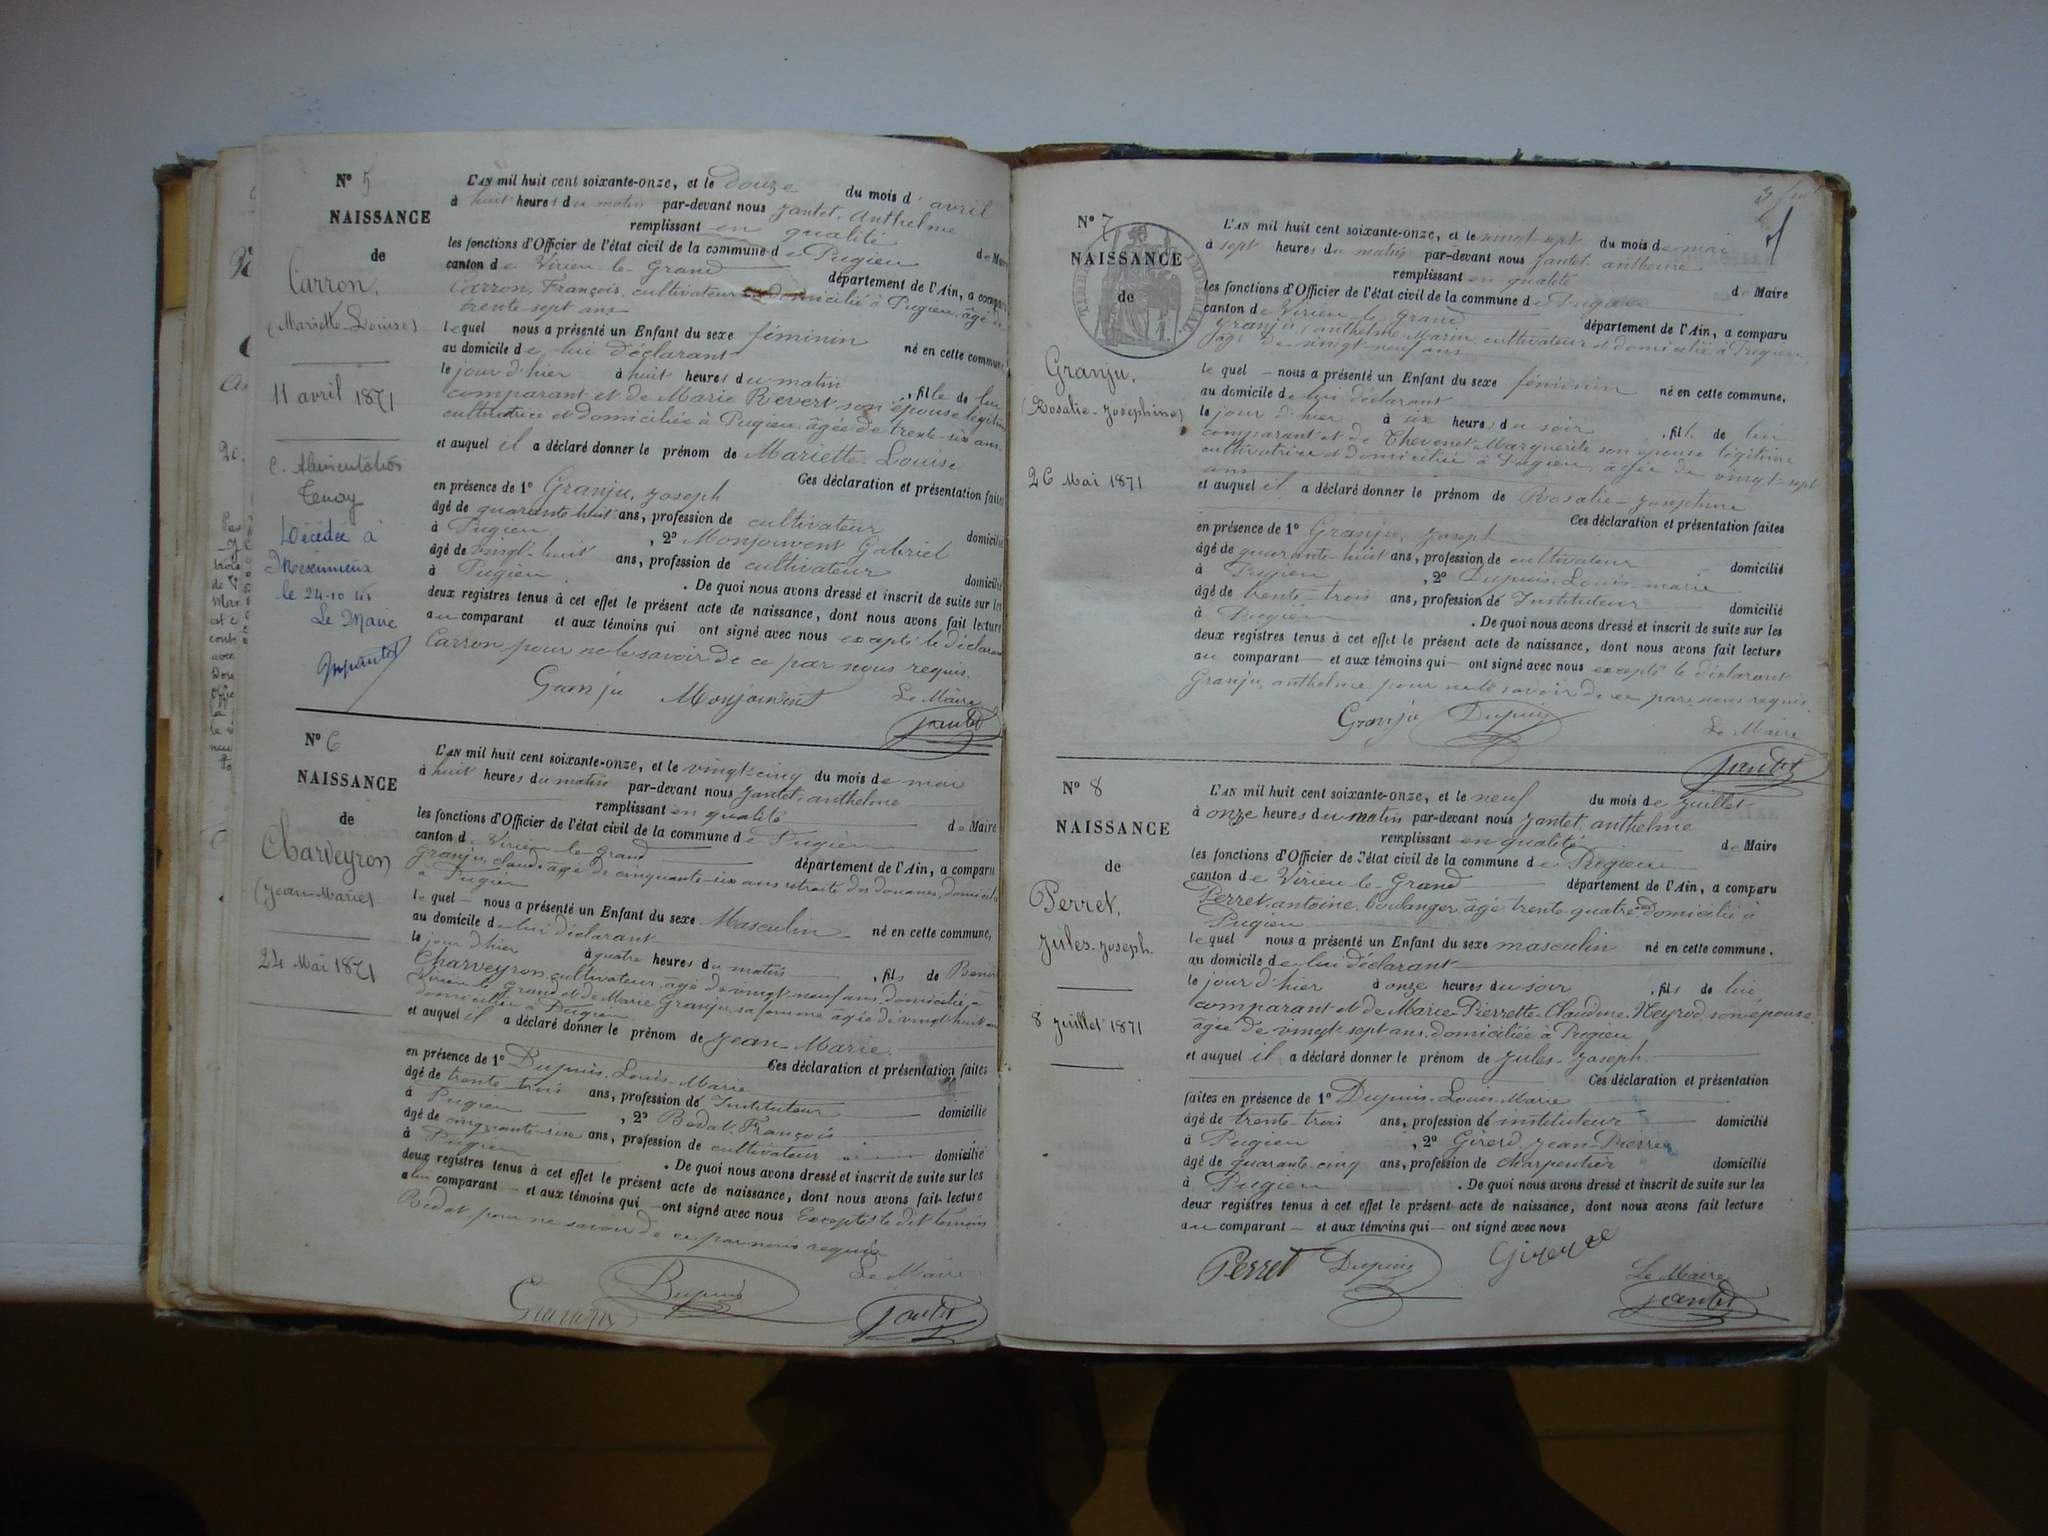 N° 5
NAISSANCE
de
Carron,
(Mariette-Louise)
11 avril 1871
C. Alimentation
Tenay
Décédée à
Meximieux
le 24-10
Le Maire
L'AN mil huit cent soixante-onze, et le douze du mois d'avril
à huit heures du matin par-devant nous Jantet, Anthelme
remplissant en qualité de Maire
les fonctions d'Officier de l'état civil de la commune de Pugieu
canton de Virieu-le-Grand département de l'Ain, a comparu
Carron, François, cultivateur domicilié à Pugieu, âgé de
trente-sept ans
lequel nous a présenté un Enfant du sexe féminin né en cette commune
au domicile de lui déclarant
le jour d'hier à huit heures du matin , fille de lui
comparant et de Marie Revert son épouse légitime
cultivatrice et domiciliée à Pugieu, âgée de trente-six ans.
et auquel il a déclaré donner le prénom de Mariette-Louise
Ces déclaration et présentation faites
en présence de 1° Granju, Joseph
âgé de quarante-huit ans, profession de cultivateur domicilié
à Pugieu , 2° Monjouvent Gabriel
âgé de vingt-huit ans, profession de cultivateur domicilié
à Pugieu . De quoi nous avons dressé et inscrit de suite sur les
deux registres tenus à cet effet le présent acte de naissance, dont nous avons fait lecture
au comparant et aux témoins qui ont signé avec nous excepté le déclarant
Carron pour ne le savoir de ce par nous requis.
Granju Monjouvent Le Maire
Jantet
N° 6
NAISSANCE
de
Charveyron
(Jean-Marie)
24 Mai 1871
L'AN mil huit cent soixante-onze, et le vingt-cinq du mois de mai
à huit heures du matin par-devant nous Jantet, anthelme
remplissant en qualité de Maire
les fonctions d'Officier de l'état civil de la commune de Pugieu
canton de Virieu-le-Grand département de l'Ain, a comparu
Granju, claude âgé de cinquante-six ans retraité des douanes, domicilié
à Pugieu
lequel nous a présenté un Enfant du sexe Masculin né en cette commune,
au domicile de lui déclarant
le jour d'hier à quatre heures du matin , fils de Benoit
Charveyron, cultivateur, âgé de vingt-neuf ans, domicilié à
Virieu-le-Grand et de Marie Granju, sa femme âgée de vingt-huit ans
domiciliée à Pugieu.
et auquel il a déclaré donner le prénom de Jean-Marie.
Ces déclaration et présentation faites
en présence de 1° Dupuis, Louis-Marie
âgé de trente-trois ans, profession de Instituteur domicilié
à Pugieu , 2° Bedat, François
âgé de cinquante-six ans, profession de cultivateur domicilié
à Pugieu . De quoi nous avons dressé et inscrit de suite sur les
deux registres tenus à cet effet le présent acte de naissance, dont nous avons fait lecture
au comparant et aux témoins qui ont signé avec nous Excepté le dit témoin
Bedat pour ne savoir de ce par nous requis
Le Maire
Granju Dupuis Jantet
N° 7
NAISSANCE
de
Granju,
(Rosalie-Josephine)
26 Mai 1871
L'AN mil huit cent soixante-onze, et le vingt-sept du mois de mai
à sept heures du matin par-devant nous Jantet, anthelme
remplissant en qualité de Maire
les fonctions d'Officier de l'état civil de la commune de Pugieu
canton de Virieu-le-Grand département de l'Ain, a comparu
Granju, anthelme Marin, cultivateur et domicilié à Pugieu,
âgé de vingt-neuf ans
lequel nous a présenté un Enfant du sexe féminin né en cette commune,
au domicile de lui déclarant
le jour d'hier à six heures du soir , fille de lui
comparant et de Thevenet Marguerite son épouse légitime
cultivatrice et domiciliée à Pugieu, âgée de vingt-sept
ans
et auquel il a déclaré donner le prénom de Rosalie-Josephine
Ces déclaration et présentation faites
en présence de 1° Granju, Joseph
âgé de quarante-huit ans, profession de cultivateur domicilié
à Pugieu , 2° Dupuis, Louis-marie
âgé de trente-trois ans, profession de Instituteur domicilié
à Pugieu . De quoi nous avons dressé et inscrit de suite sur les
deux registres tenus à cet effet le présent acte de naissance, dont nous avons fait lecture
au comparant et aux témoins qui ont signé avec nous excepté le déclarant
Granju, anthelme pour ne le savoir de ce par nous requis.
Granju Dupuis Le Maire
Jantet
N° 8
NAISSANCE
de
Perret,
Jules-Joseph.
8 Juillet 1871
L'AN mil huit cent soixante-onze, et le neuf du mois de Juillet
à onze heures du matin par-devant nous Jantet, anthelme
remplissant en qualité de Maire
les fonctions d'Officier de l'état civil de la commune de Pugieu
canton de Virieu-le-Grand département de l'Ain, a comparu
Perret, antoine, boulanger âgé trente-quatre ans domicilié à
Pugieu
lequel nous a présenté un Enfant du sexe masculin né en cette commune.
au domicile de lui déclarant
le jour d'hier à onze heures du soir , fils de lui,
comparant et de Marie-Pierrette-Claudine Neyrod, son épouse,
âgée de vingt-sept ans, domiciliée à Pugieu
et auquel il a déclaré donner le prénom de Jules-Joseph.
Ces déclaration et présentation
faites en présence de 1° Dupuis, Louis-Marie
âgé de trente-trois ans, profession de instituteur domicilié
à Pugieu , 2° Girerd, Jean-Pierre
âgé de quarante-cinq ans, profession de charpentier domicilié
à Pugieu . De quoi nous avons dressé et inscrit de suite sur les
deux registres tenus à cet effet le présent acte de naissance, dont nous avons fait lecture
au comparant et aux témoins qui ont signé avec nous
Perret Dupuis Le Maire
Jantet